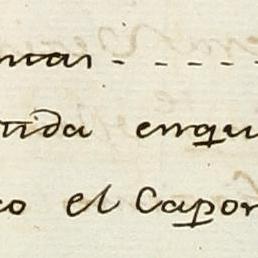 mas - - - -
nida enqu
co el Capor